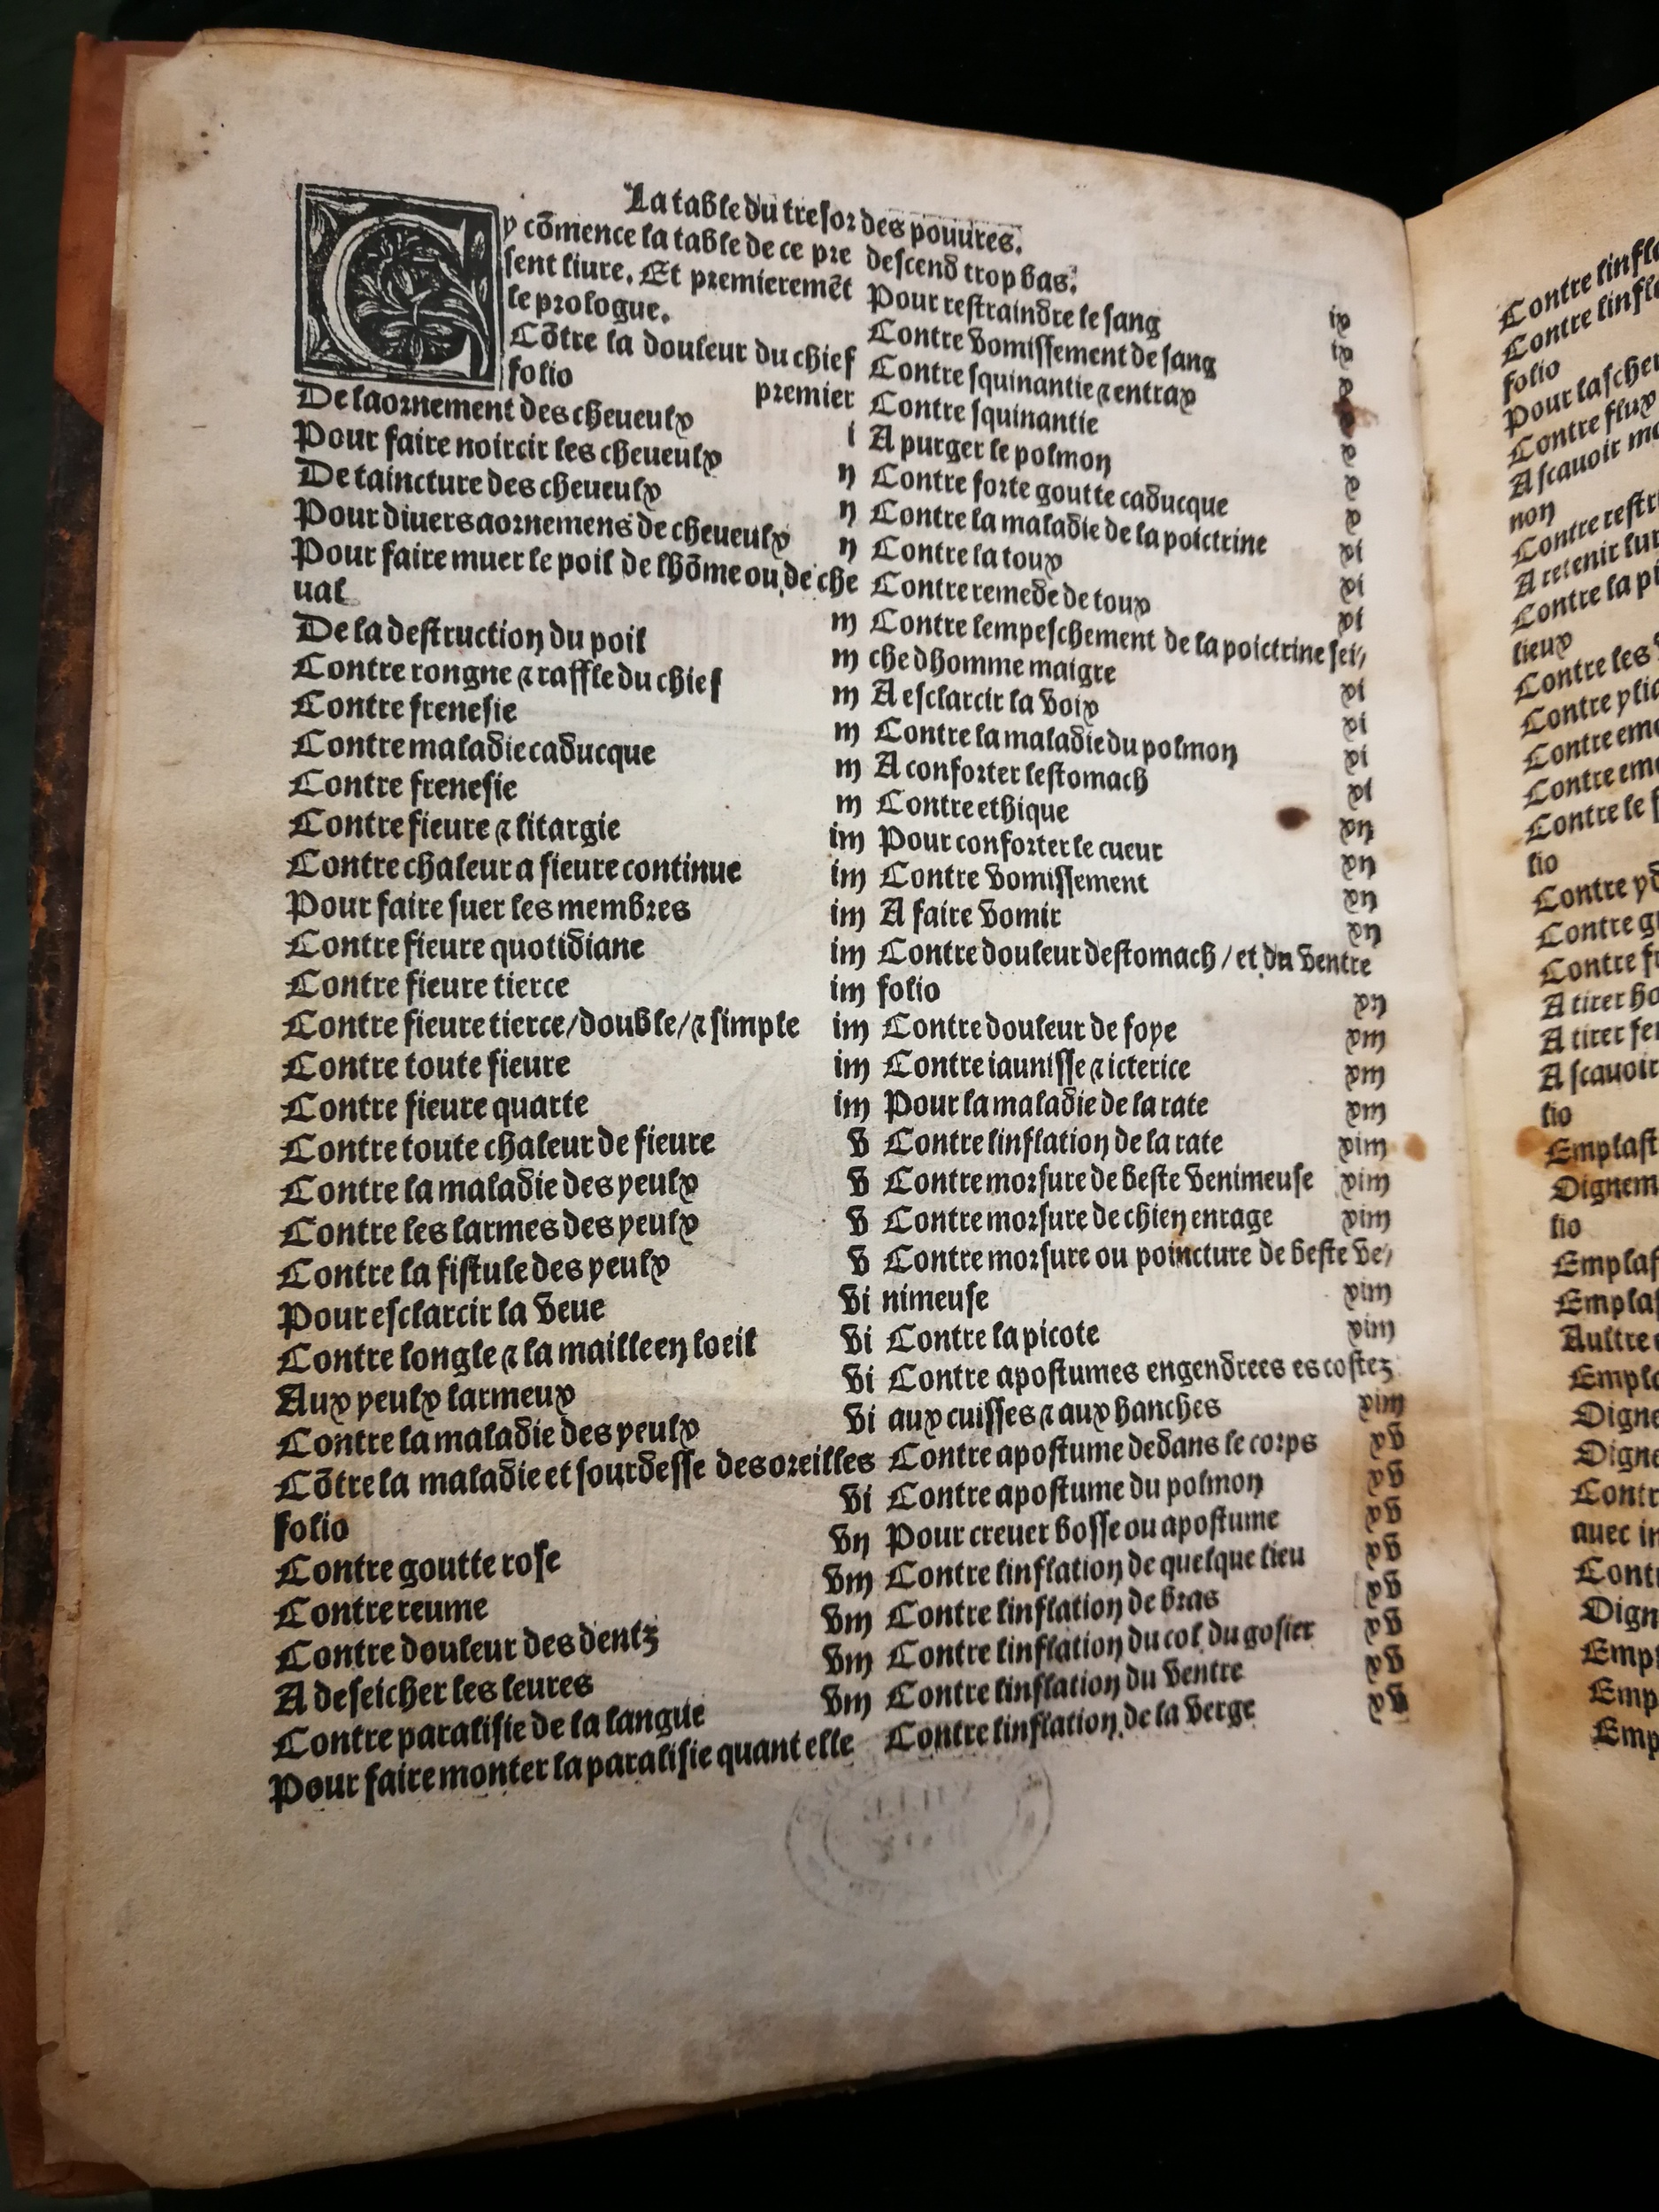 La table du tresor des pouures.
Cy cõmence la table de ce pre
sent liure. Et premieremẽt
le prologue.
Cõtre la douleur du chief
folio premier
De laornement des cheueulx i
Pour faire noircir les cheueulx ii
De taincture des cheueulx ii
Pour diuers aornemens de cheueulx ii
Pour faire muer le poil de lhõme ou de che
ual iii
De la destruction du poil iii
Contre rongne & raffle du chief iii
Contre frenesie iii
Contre maladie caducque iii
Contre frenesie iii
Contre fieure & litargie iiii
Contre chaleur a fieure continue iiii
Pour faire suer les membres iiii
Contre fieure quotidiane iiii
Contre fieure tierce iiii
Contre fieure tierce/double/& simple iiii
Contre toute fieure iiii
Contre fieure quarte iiii
Contre toute chaleur de fieure v
Contre la maladie des yeulx v
Contre les larmes des yeulx v
Contre la fistule des yeulx v
Pour esclarcir la veue vi
Contre longle & la maille en loeil vi
Aux yeulx larmeux vi
Contre la maladie des yeulx vi
Cõtre la maladie et sourdesse des oreilles
folio vi
Contre goutte rose vii
Contre reume viii
Contre douleur des dentz viii
A deseicher les leures viii
Contre paralisie de la langue viii
Pour faire monter la paralisie quant elle
descend trop bas.
Pour restraindre le sang ix
Contre vomissement de sang ix
Contre squinantie & entrax x
Contre squinantie
A purger le polmon x
Contre forte goutte caducque x
Contre la maladie de la poictrine x
Contre la toux xi
Contre remede de toux xi
Contre lempeschement de la poictrine sei/
che dhomme maigre
A esclarcir la voix xi
Contre la maladie du polmon xi
A conforter lestomach xi
Contre ethique xi
Pour conforter le cueur xii
Contre vomissement xii
A faire vomir xii
Contre douleur destomach/et du ventre
folio xii
Contre douleur de foye xiii
Contre iaunisse & icterice xiii
Pour la maladie de la rate xiii
Contre linflation de la rate xiiii
Contre morsure de beste venimeuse xiiii
Contre morsure de chien enrage xiiii
Contre morsure ou poincture de beste ve/
nimeuse xiiii
Contre la picote xiiii
Contre apostumes engendrees es costez
aux cuisses & aux hanches xiiii
Contre apostume dedans le corps xv
Contre apostume du polmon xv
Pour creuer bosse ou apostume xv
Contre linflation de quelque lieu xv
Contre linflation de bras xv
Contre linflation du col du gosier xv
Contre linflation du ventre xv
Contre linflation de la verge xv
Contre
Contre
folio
Pour
Contre flux
A scauoir
non
Contre
A retenir
Contre la
lieux
Contre les
Contre
Contre
Contre
Contre le
lio
Contre
Contre
Contre
A tirer
A tirer
A scauoir
lio
lio
Aultre
auec